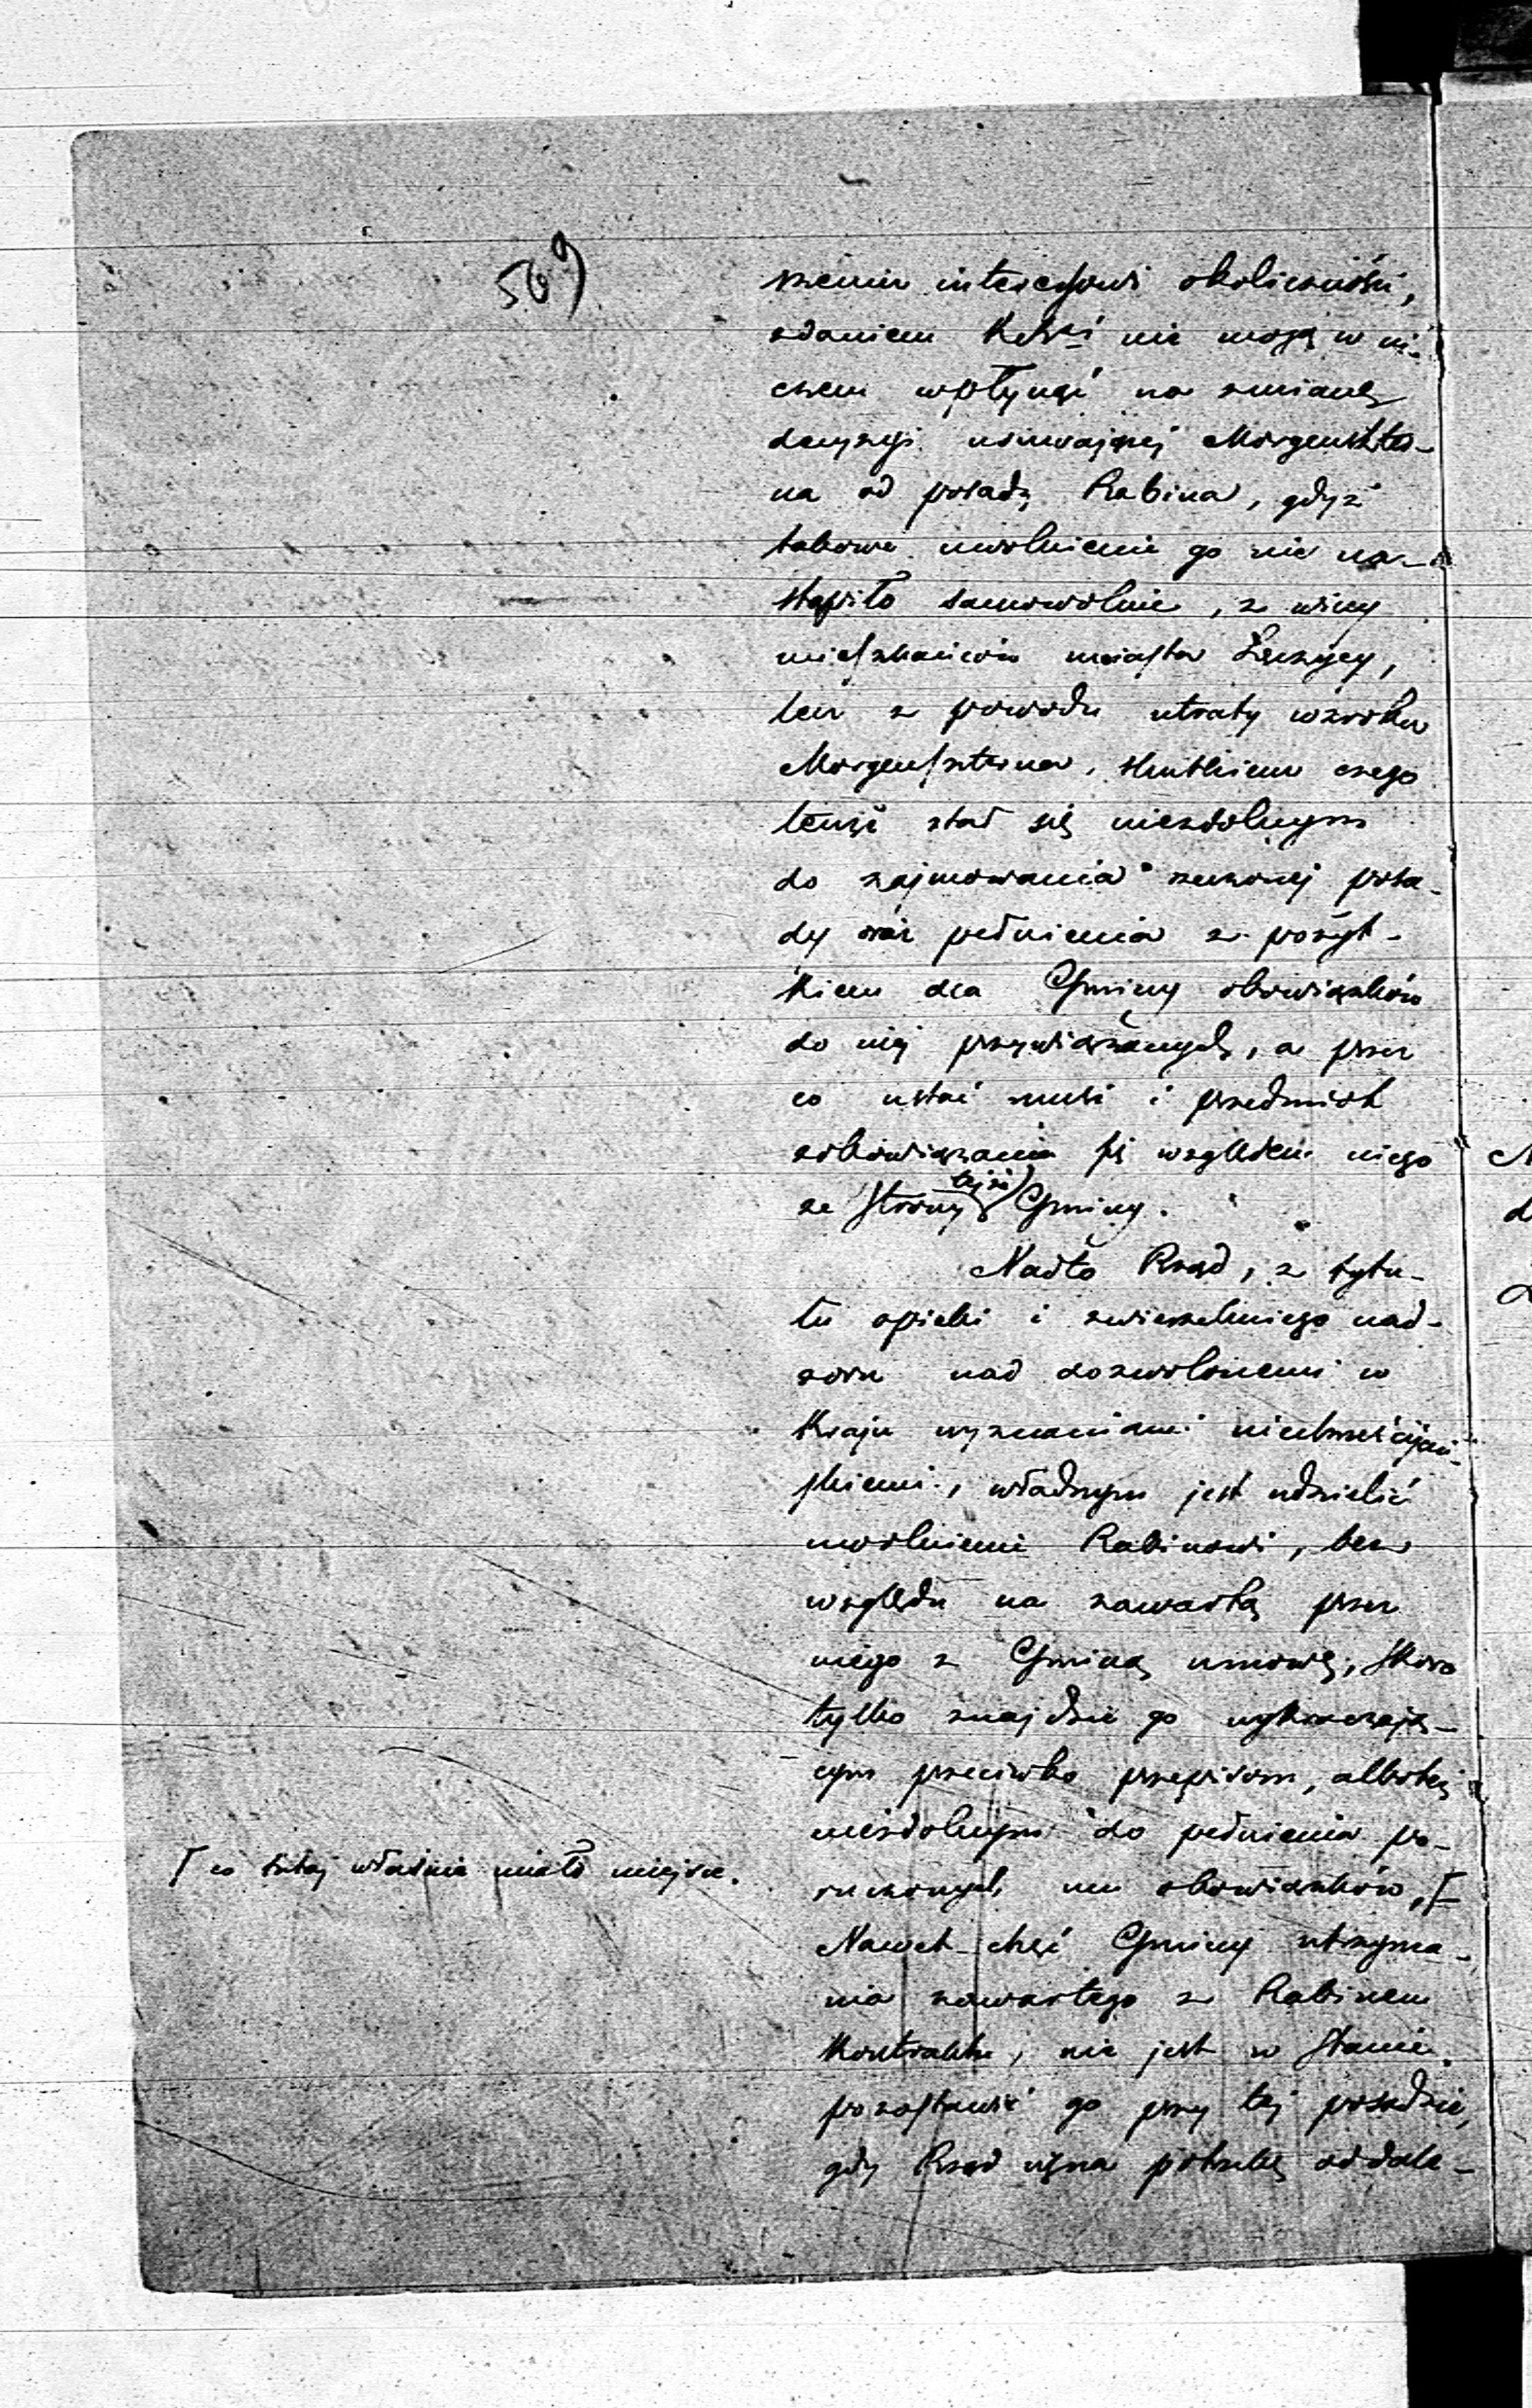 569
szemu interessowi okoliczności,
zdaniem nie mogą w ni-
czem wpłynąć na zmianę
decyzyi usuwającej Morgenszter-
na od posady Rabina, gdyż
takowe uwolnienie go nie na-
stąpiło samowolnie, z winy
mieszkańców miasta Łęczycy,
lecz z powodu utraty wzroku
Morgenszterna, skutkiem czego
tenże stał się niezdolnym
do zajmowania rzeczonej posa-
dy oraz pełnienia z pożyt-
kiem dla Gminy obowiązków
do niej przywiązanych, a przez
co ustać musi i przedmiot
zobowiązania się względem niego
ze strony tejże Gminy.
Nadto Rząd, z tytu-
łu opieki i zwierzchniego nad-
zoru nad dozwolonemi w
Kraju wyznaniami niechrześcijań-
skiemi, władnym jest udzielić
uwolnienie Rabinowi, bez
względu na zawartą przez
niego z Gminą umowę, skoro
tylko znajdzie go wykraczają-
cym przeciwko przepisom, albo też
niezdolnym do pełnienia po-
ruczonych mu obowiązków, Γ
Γ co tutaj właśnie miało miejsce.
Nawet chęć Gminy utrzyma-
nia zawartego z Rabinem
Kontraktu, nie jest w stanie
pozostawić go przy tej posadzie,
gdy Rząd uzna potrzebę oddale-